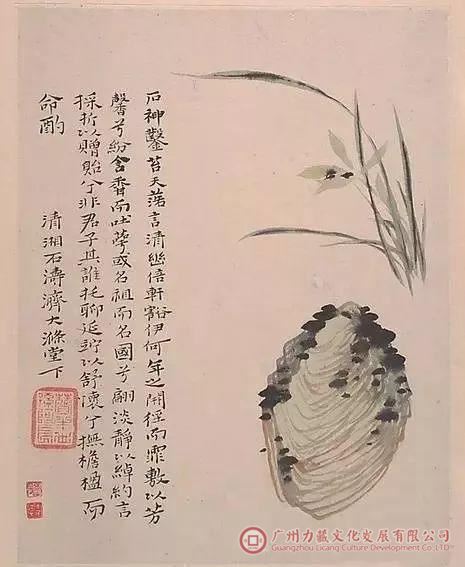 石神鑿苔天蕩言清幽倍軒豁伊何年之開徑而霏敷以芳
馨兮紛含香而吐榮或名祖而名國兮嗣淡靜以綽約言
採折以贈貽兮非君子其誰托聊延竚以舒懷兮撫檐楹而
命酌
清湘石濤濟大滌堂下
广州力藏文化发展有限公司
Guangzhou Licang Culture Development Co.,Ltd